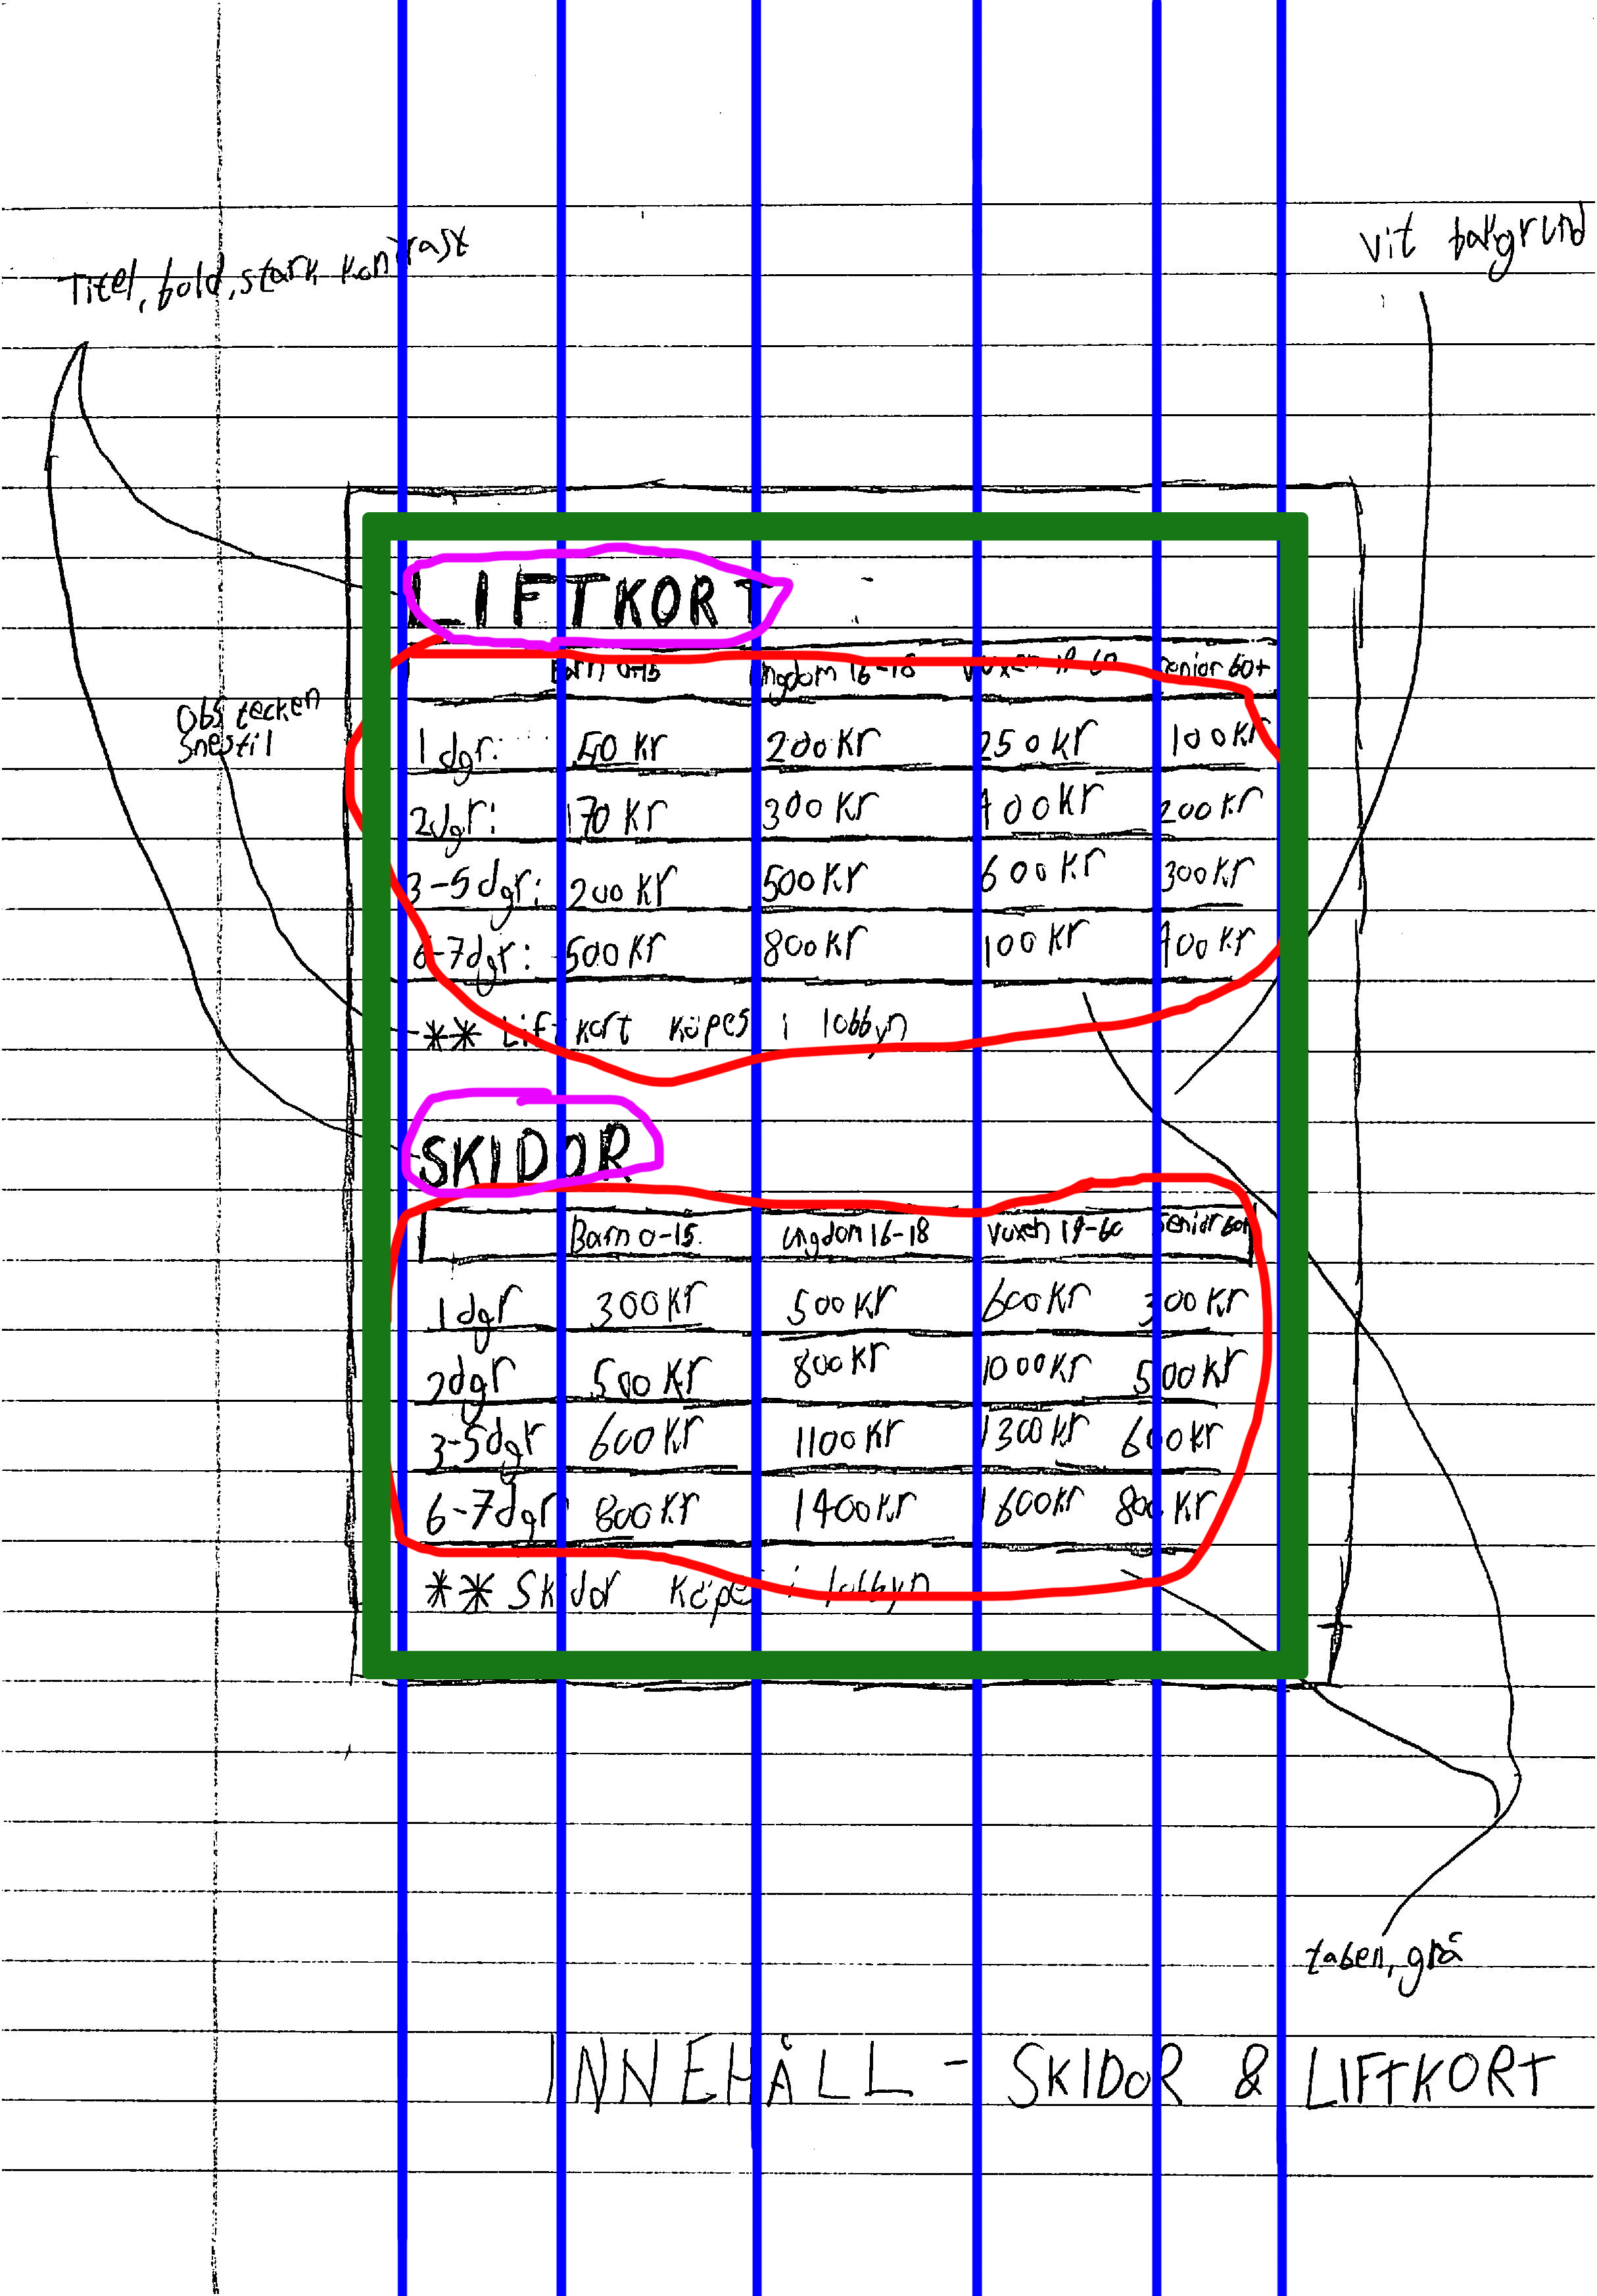 Titel, bold, stark kontrast
vit bakgrund
LIFTKORT
Barn 0-15 ungdom 16-18 Vuxen 19-60 Senior 60+
Obs tecken
Snestil
1 dgr: 50 kr 200 kr 250 kr 100 kr
2dgr: 170 kr 300 kr 400 kr 200 kr
3-5dgr: 200 kr 500 kr 600 kr 300 kr
6-7dgr: 500 kr 800 kr 100 kr 400 kr
** Liftkort köpes i lobbyn
SKIDOR
Barn 0-15. ungdom 16-18 Vuxen 19-60 Senior
1 dgr 300 kr 500 kr 600 kr 300 kr
2dgr 500 kr 800 kr 1000 kr 500 kr
3-5dgr 600 kr 1100 kr 1300 kr 600 kr
6-7dgr 800 kr 1400 kr 1600 kr 800 kr
** Skidor köpes i lobbyn
grå
INNEHÅLL - SKIDOR & LIFTKORT